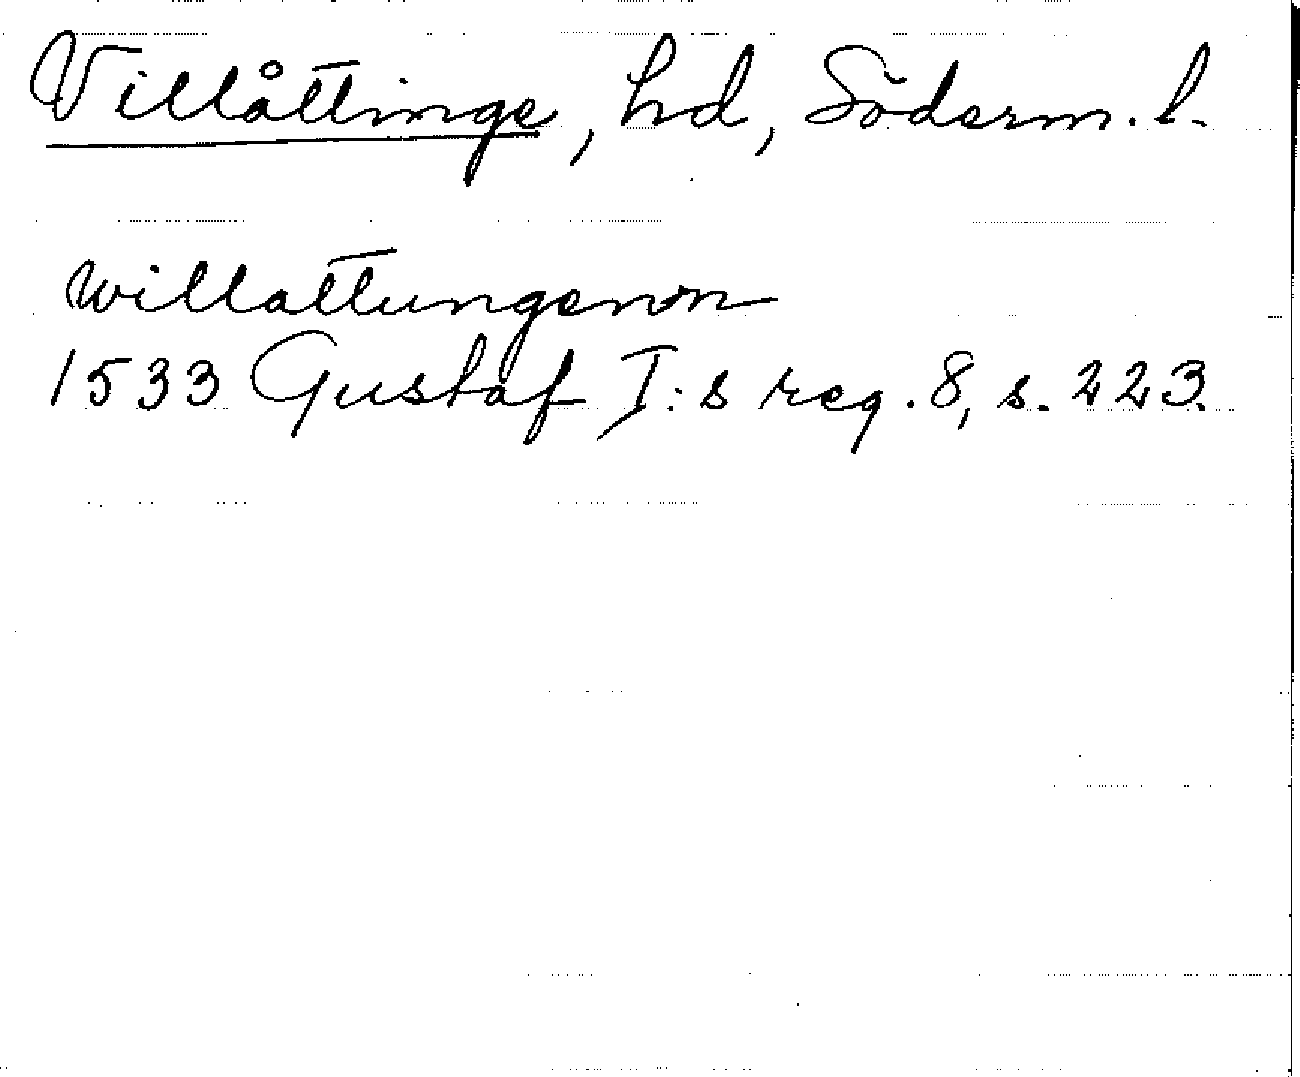 Villåttinge, hd, Söderm. l.
willattungenom
1533 Gustaf I:s reg. 8, s. 223.